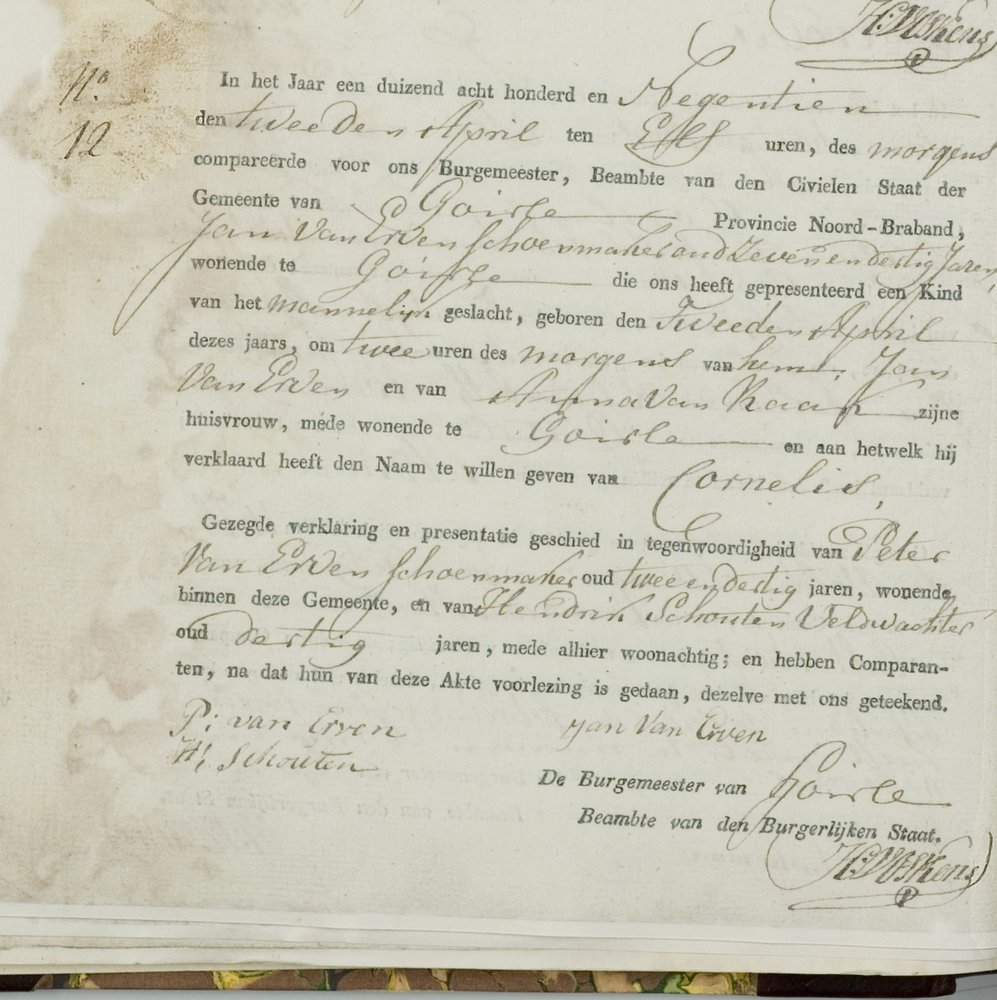 No
12
In het Jaar een duizend acht honderd en Negentien
den tweeden April ten Elf uren, des morgens
compareerde voor ons Burgemeester, Beambte van den Civielen Staat der
Gemeente van Goirle Provincie Noord-Braband,
Jan Van Erven Schoenmaker oud Zeven en dertig Jaren,
wonende te Goirle die ons heeft gepresenteerd een Kind
van het mannelijk geslacht, geboren den Tweeden April
dezes jaars, om twee uren des morgens van hem, Jan
Van Erven en van Anna Van Raak zijne
huisvrouw, mede wonende te Goirle en aan hetwelk hij
verklaard heeft den Naam te willen geven van Cornelis,
Gezegde verklaring en presentatie geschied in tegenwoordigheid van Peter
Van Erven Schoenmaker oud twee en dertig jaren, wonende
binnen deze Gemeente, en van Hendrik Schouten Veldwachter
oud dertig jaren, mede alhier woonachtig; en hebben Comparan-
ten, na dat hun van deze Akte voorlezing is gedaan, dezelve met ons geteekend.
P: van Erven Jan Van Erven
H: Schouten
De Burgemeester van Goirle
Beambte van den Burgerlijken Staat.